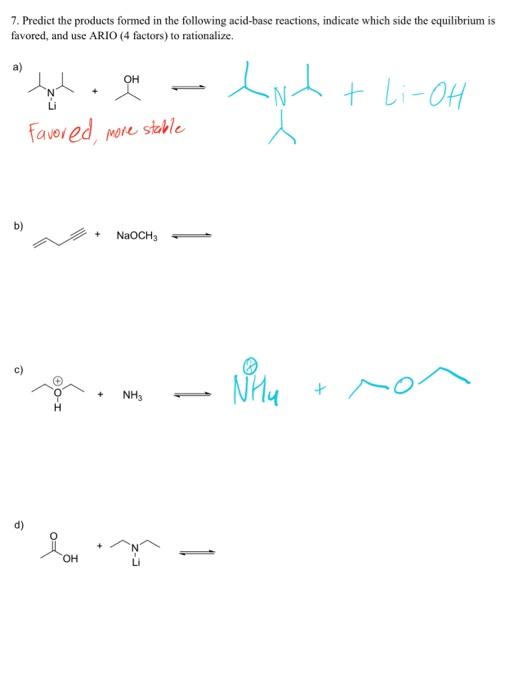 7. Predict the products formed in the following acid-base reactions, indicate which side the equilibrium is
favored, and use ARIO (4 factors) to rationalize.
a)
N
Li
+
OH
N
+ Li-OH
Favored, more stable
b)
+ NaOCH₃
c)
⊕
O
H
+ NH₃
⊕
NH₄ + O
d)
O
OH
+
N
Li